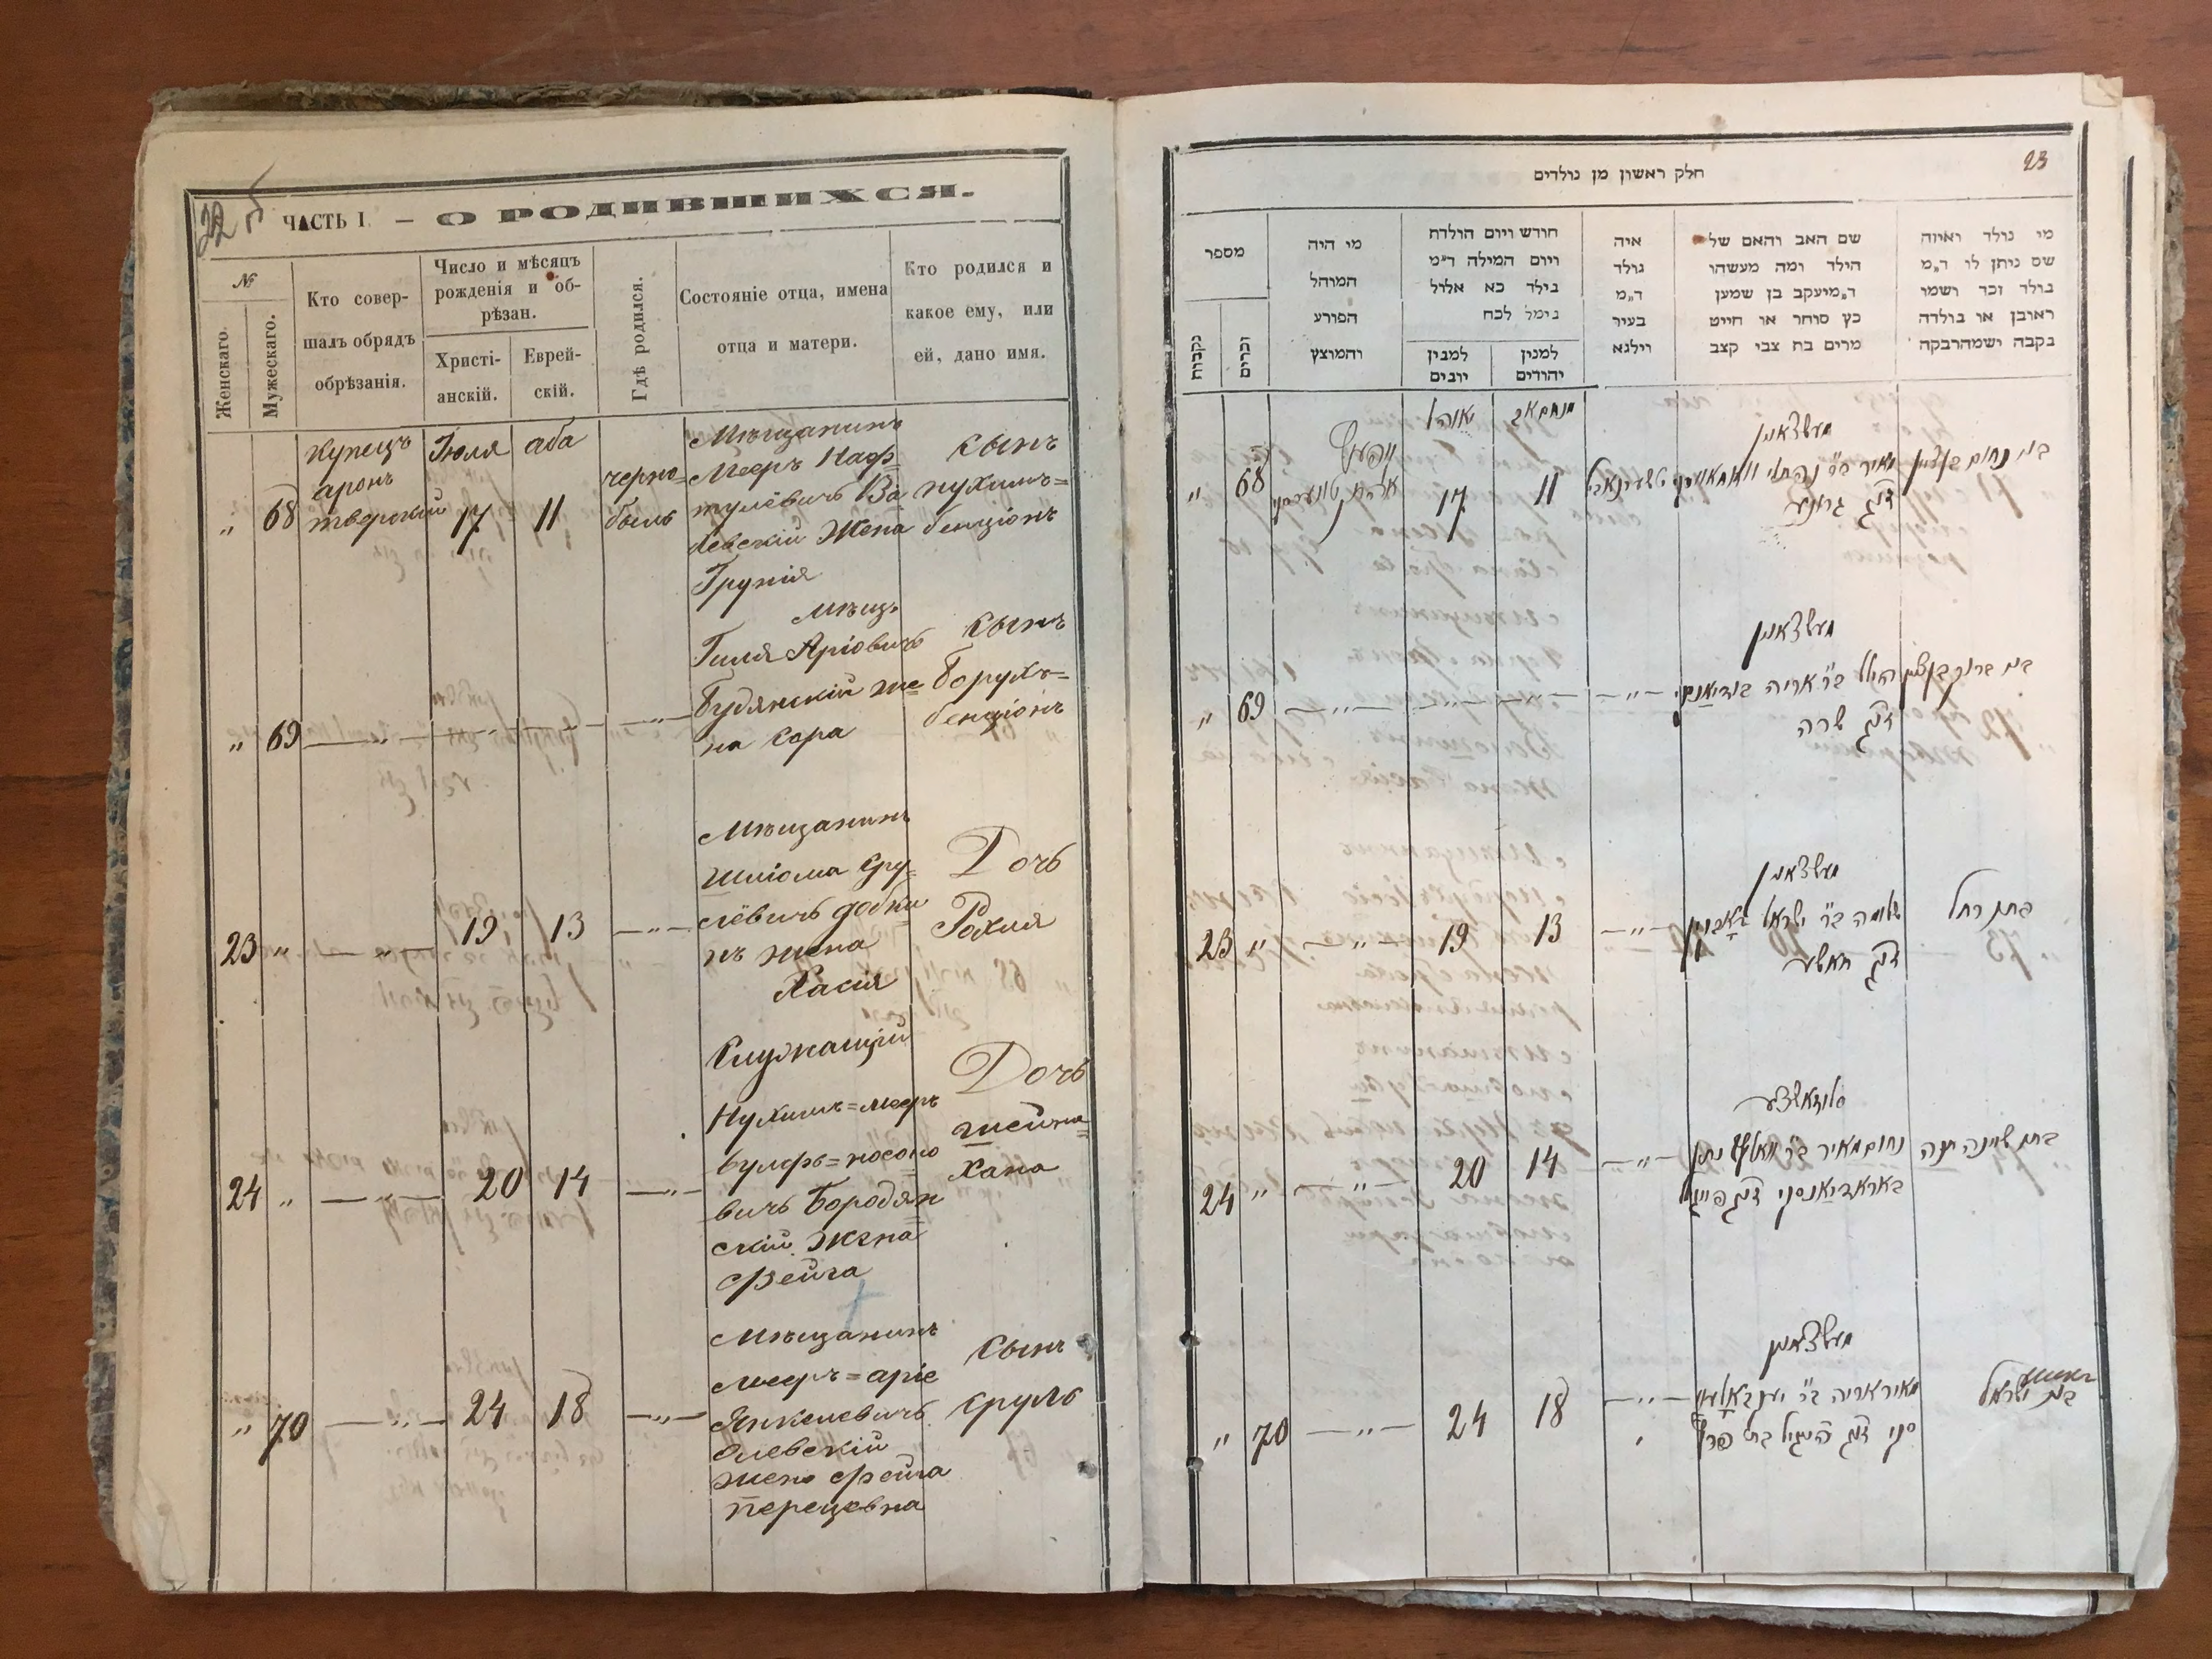 22
ЧАСТЬ I. — О РОДИВШИХСЯ.
№
Женскаго.
Мужескаго.
Кто совер-
шалъ обрядъ
обрѣзанія.
Число и мѣсяцъ
рожденія и об-
рѣзан.
Христі-
анскій.
Еврей-
скій.
Гдѣ родился.
Состояніе отца, имена
отца и матери.
Кто родился и
какое ему, или
ей, дано имя.
„ 68
купецъ
аронъ
тверскій
Іюля
17
аба
11
черно=
быль
Мѣщанинъ
Мееръ Наф=
тулёвичъ Ва
левскій Жена
Грунія
сынъ
нухимъ=
бенціонъ
„ 69 — „ — — „ —
мѣщ.
Гиля Аріовичъ
Будянскій же=
на сора
сынъ
Борухъ=
бенціонъ
23 „ — „ — 19 13 — „ —
Мѣщанинъ
Шліома Сру=
лёвичъ добки
нъ жена
Хасія
Дочь
Рохля
24 „ — „ — 20 14 — „ —
Служащій
Нухимъ=мееръ
вулфъ=носоно
вичъ Бородян
скій жена
фейга
Дочь
шейна=
хана
„ 70 — „ — 24 18 — „ —
Мѣщанинъ
мееръ=аріе
Янкелевичъ
олевскій
жена фейга
перецовна
сынъ
сруль
23
חלק ראשון מן נולדים
מספר
נקבות
זכרים
מי היה
המוהל
הפורע
והמוצץ
חודש ויום הולדת
ויום המילה ד״מ
נילד כא אלול
נימל לכח
למנין
יונים
למנין
יהודים
איה
נולד
ד״מ
בעיר
וילנא
שם האב והאם של
הילד ומה מעשהו
ד״מ יעקב בן שמען
כץ סוחר או חייט
מרים בת צבי קצב
מי נולד ואיזה
שם ניתן לו ד״מ
נולד זכר ושמו
ראובן או נולדה
נקבה ושמה רבקה
„ 68
קופעץ
אהרן טווערסקי
יוליא
17
מנחם אב
11
מעשצאנין
מאיר ב״ר נפתלי
בן נחום בנציון
„ 69 — „ — — „ — — „ —
מעשצאנין
הילל ב״ר אריה בודיאנסקי
זוג׳ שרה
בן ברוך בנציון
23 „ — „ — 19 13 — „ —
מעשצאנין
שלמה ב״ר ישראל דאבקין
זוג׳ חאסיע
בת רחל
24 „ — „ — 20 14 — „ —
נחום מאיר ב״ר וואלף נתן
באראדיאנסקי זוג׳ פייגל
בת שיינה חנה
„ 70 — „ — 24 18 — „ —
מעשצאנין
מאיר אריה ב״ר יעקב אלעוו
סקי זוג׳ פייגל בת פרץ
בן ישראל